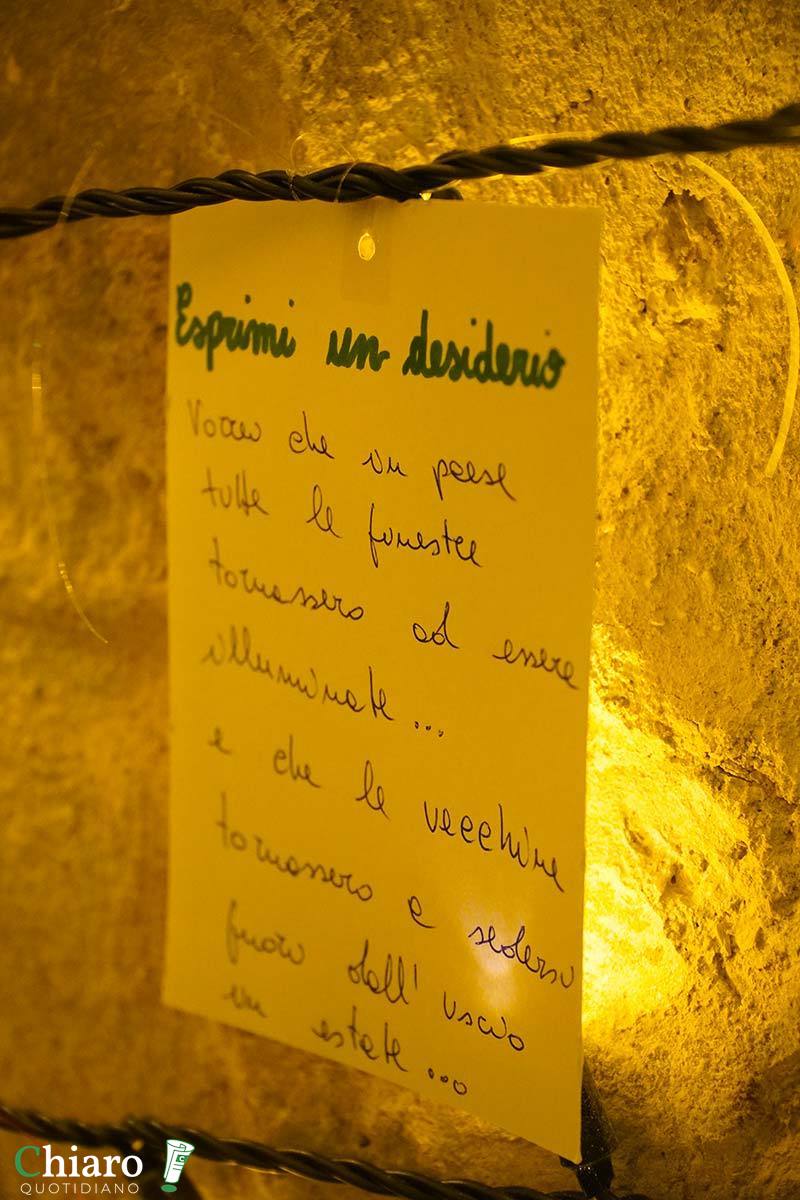 Esprimi un desiderio
Vorrei che in paese
tutte le finestre
tornassero ad essere
illuminate...
e che le vecchine
tornassero a sedersi
fuori dall' uscio
in estate...
Chiaro
QUOTIDIANO